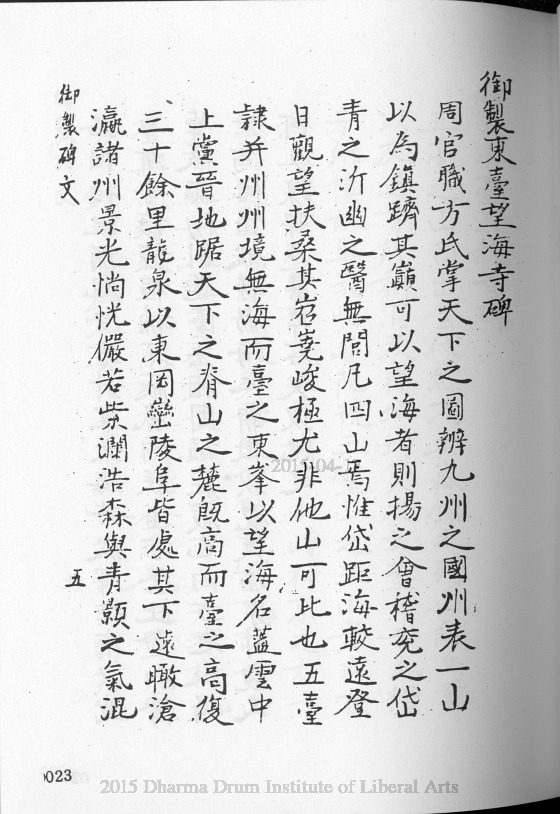 御製東臺望海寺碑
周官職方氏掌天下之圖辨九州之國州表一山
以為鎮躋其巔可以望海者則揚之會稽兗之岱
青之沂幽之醫無閭凡四山焉惟岱距海較遠登
日觀望扶桑其岧嶤峻極尤非他山可比也五臺
隸并州州境無海而臺之東峯以望海名蓋雲中
上黨晉地踞天下之脊山之麓既高而臺之高復
三十餘里龍泉以東岡巒陵阜皆處其下遠瞰滄
瀛諸州景光惝恍儼若紫瀾浩森與青顥之氣混
御製碑文
五
0023
2015-04-1
2015 Dharma Drum Institute of Liberal Arts